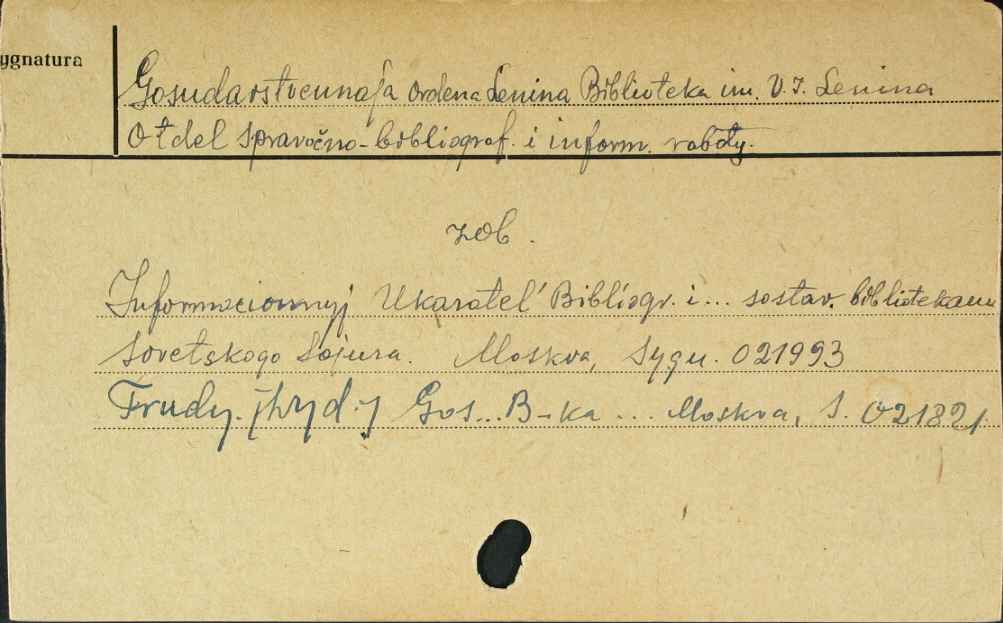 ygnatura
Gosudarstvennaja ordena Lenina Biblioteka im. V. I. Lenina
Otdel spravočno-bibliograf. i inform. raboty.
zob.
Informacionnyj Ukazatel' Bibliogr. i... sostav. bibliotekami
Sovetskogo Sojuza. Moskva, Sygn. 021993
Trudy. [Wyd.] Gos... B-ka ... Moskva, S. 021821